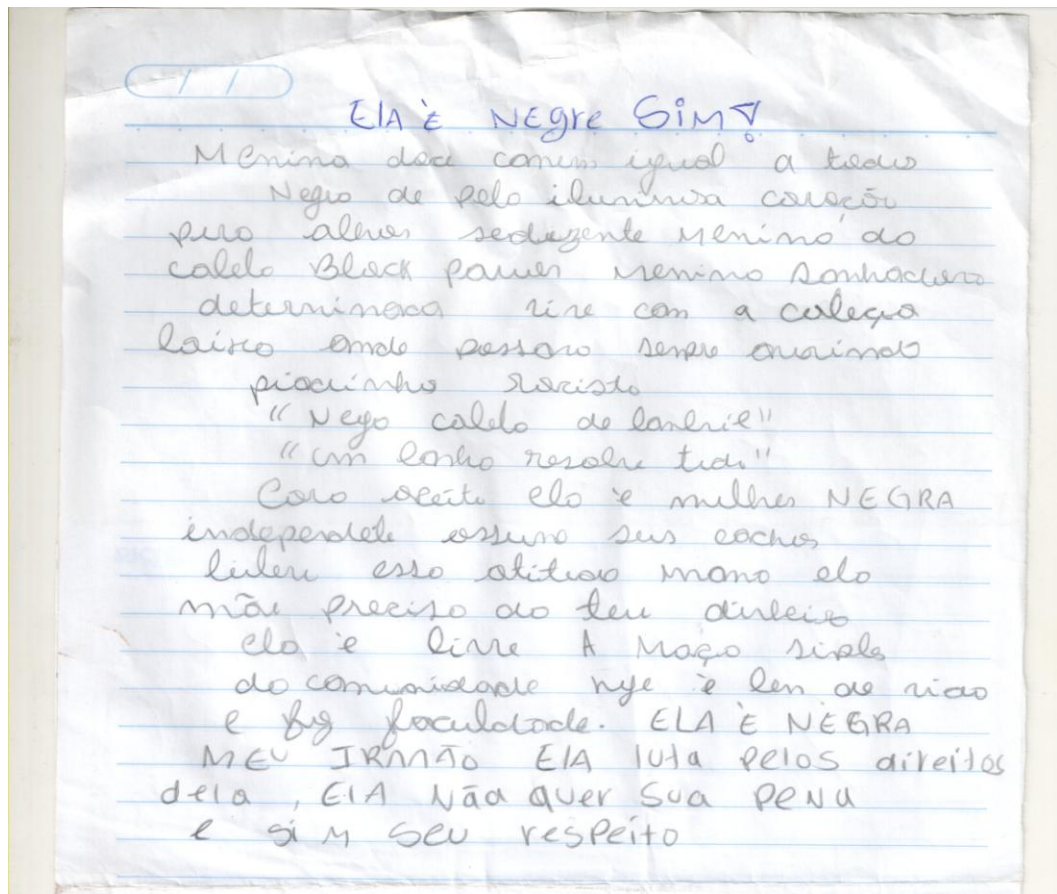 ElA È NEgre SiM!
Menina doce comum igual a todas
Negra de pele iluminosa coração
puro olhos seduzente menina do
cabelo Black pawer menina sonhadora
determinada vive com a cabeça
baixa onde passava sempre ouvindo
piadinha racista
"Nego cabelo de bombril"
"um banho resolve tudo"
Cara aceita ela è mulher NEGRA
independete assume seus cachos
esso atitude mano ela
não precisa do teu dinheiro
ela è livre A Moça siples
da comunidade hoje è bem de vida
e faz faculdade. ELA È NEGRA
MEU IRMÃO ElA luta pelos direitos
dela, ElA Não quer sua PENA
e siM SEU respeito